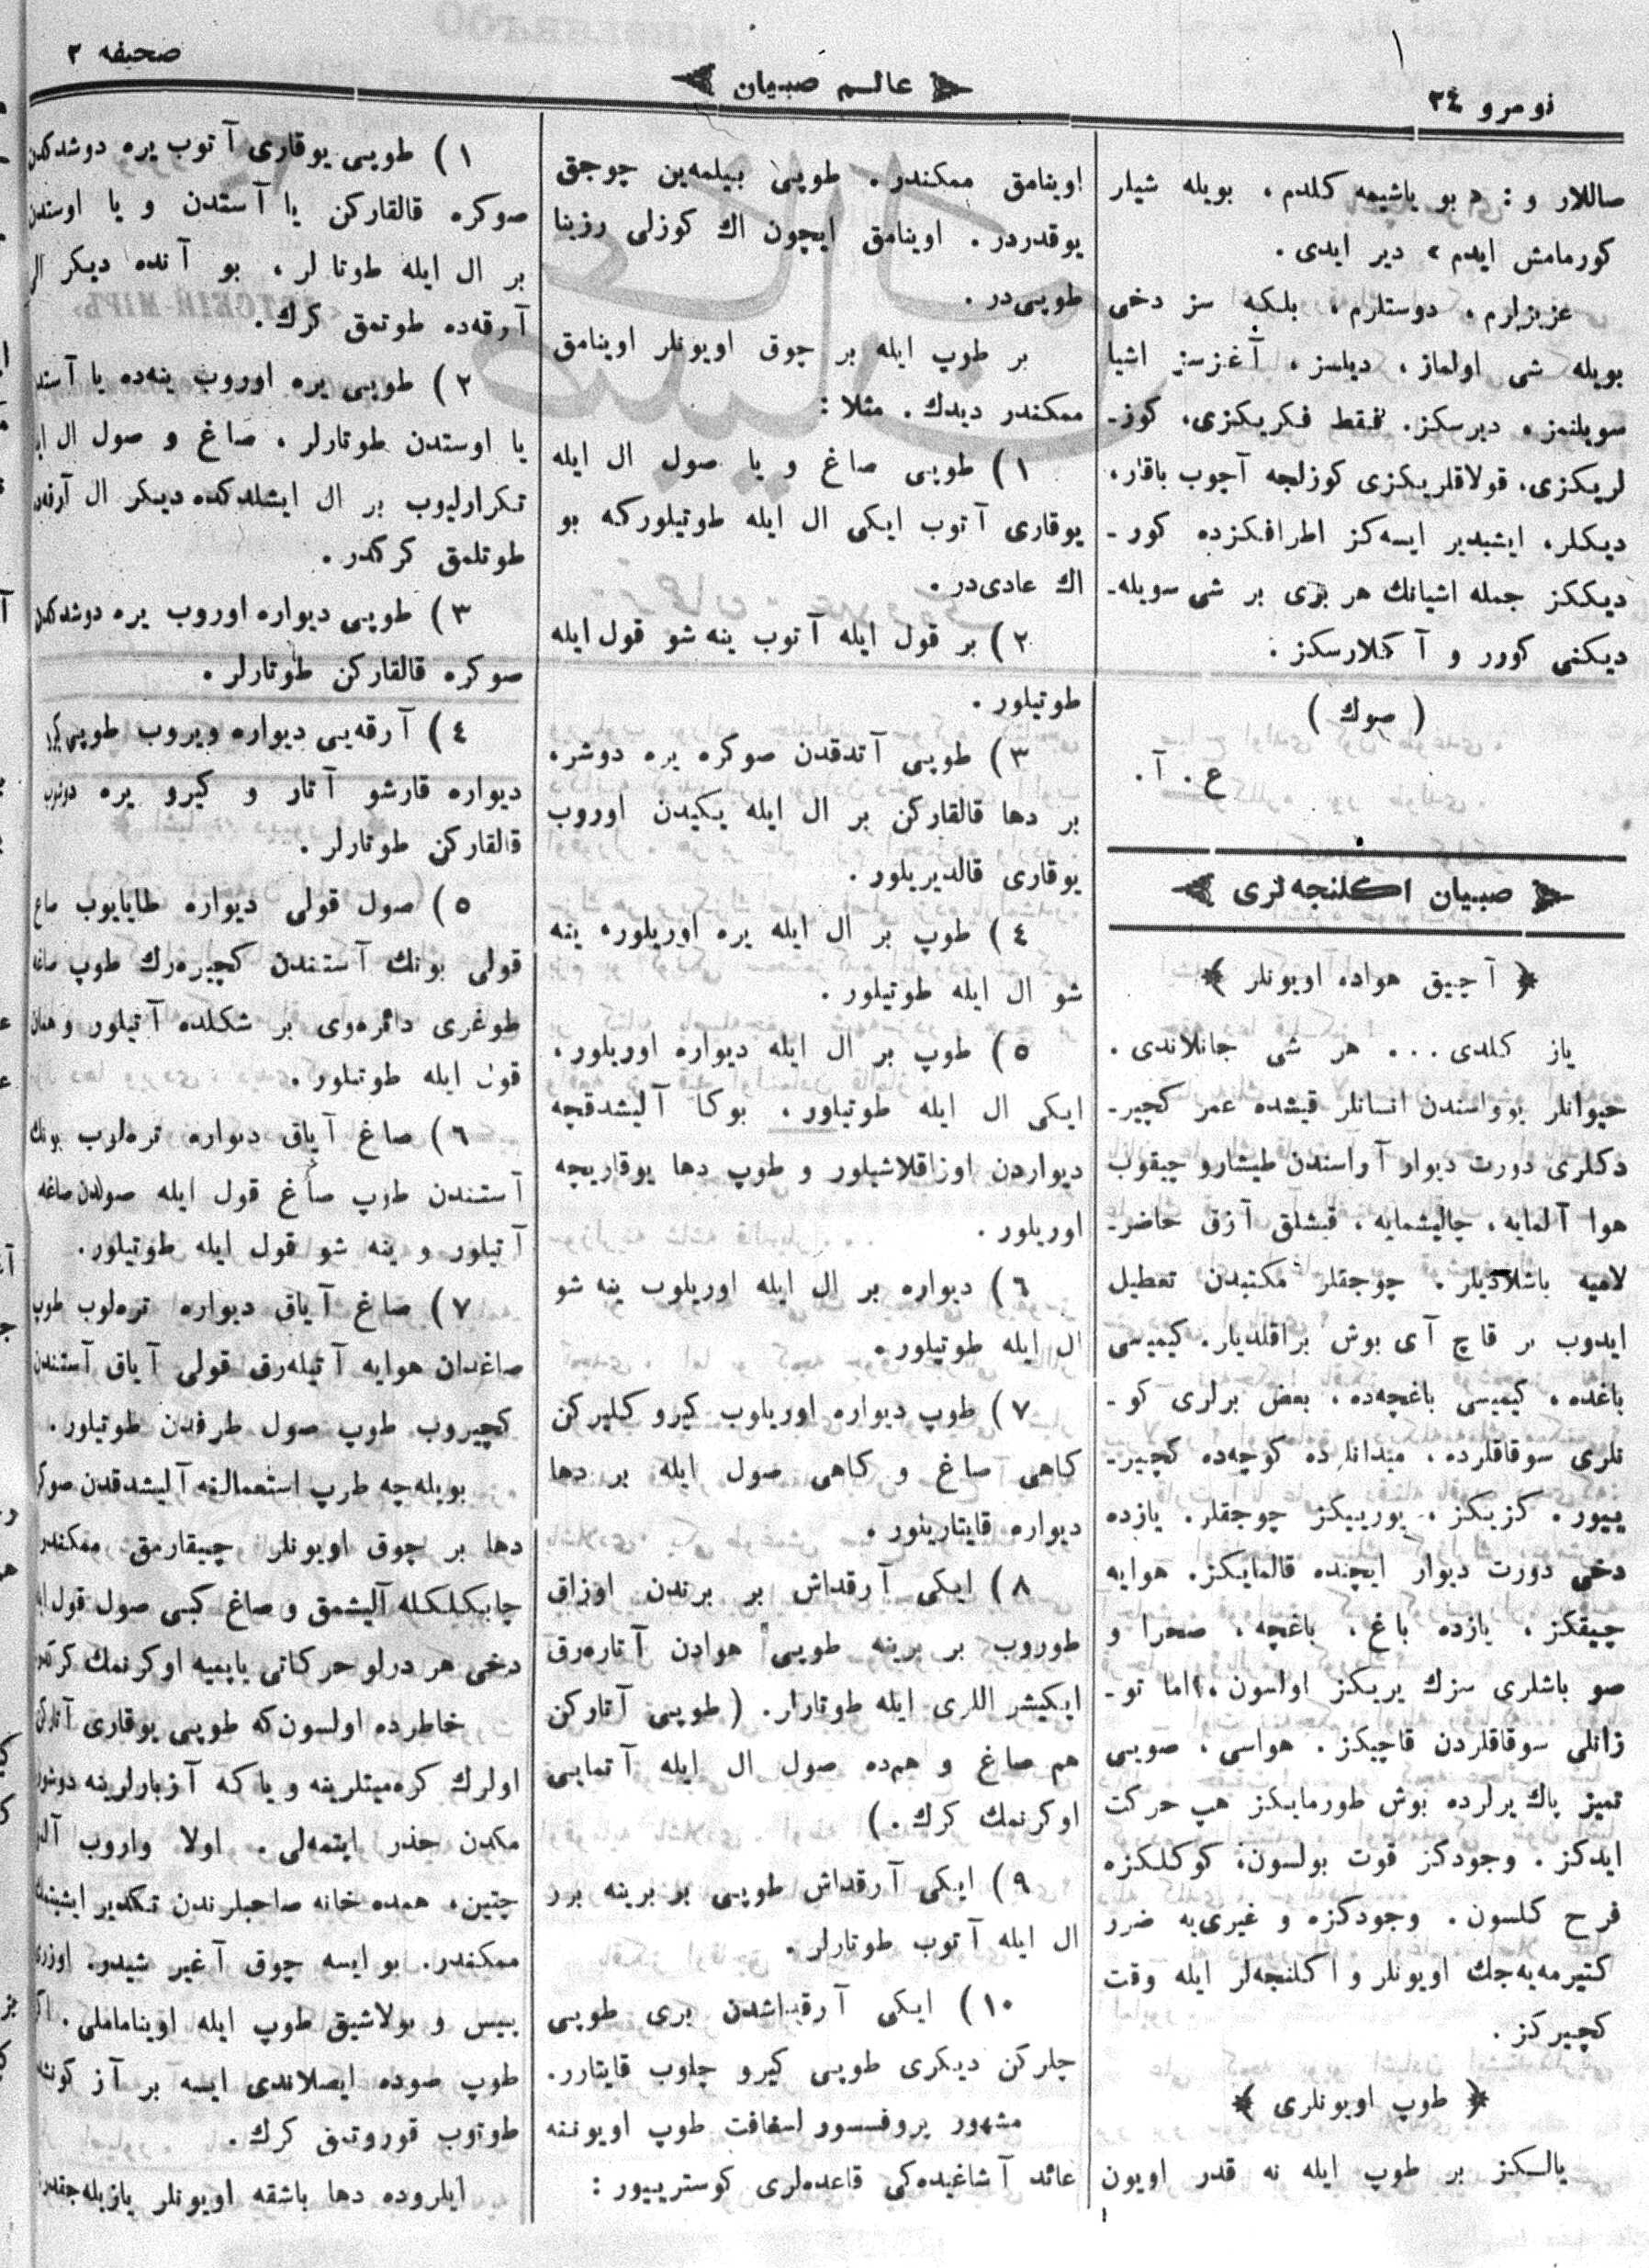 نومرو ٣٤
عالم صبيان
صحيفه ٣
صاللار و : « بو ياشيمه كلدم ، بويله شيلر
كورمامش ايدم » دير ايدى .
عزيزلرم ، دوستلرم ، بلكه سز دخى
بويله شى اولماز ، ديلسز ، آغزسز اشيا
سويلنمز ، ديرسكز. فقط فكريكزى، كوز-
لريكزى، قولاقلريكزى كوزلجه آچوب باقار،
ديكلر، ايشيدير ايسه كز اطرافكزده كور-
ديككز جمله اشيانك هر برى بر شى سويله-
ديكنى كورر و آكلارسكز .
( صوك )
ع . آ .
صبيان اكلنجه لرى
﴿ آچيق هواده اويونلر ﴾
ياز كلدى ... هر شى جانلاندى .
حيوانلر يوواسندن انسانلر قيشده عمر كچير-
دكلرى دورت ديوار آراسندن طيشارو چيقوب
هوا آلمايه ، چاليشمايه ، قيشلق آزق حاضر-
لاميه باشلاديلر . چوجقلر مكتبدن تعطيل
ايدوب بر قاچ آى بوش براقلديلر. كيميسى
باغده ، كيميسى باغچه ده ، بعض برلرى كو-
نلرى سوقاقلرده ، ميدانلرده كوچه ده كچير-
ييور . كزيكز ، يورييكز چوجقلر. يازده
دخى دورت ديوار ايچنده قالمايكز. هوايه
چيقكز ، يازده باغ ، باغچه ، صحرا و
صو باشلرى سزك يريكز اولسون ، اما تو-
زانلى سوقاقلردن قاچيكز . هواسى ، صويى
تميز پاك يرلرده بوش طورمايكز هپ حركت
ايدكز . وجودكز قوت بولسون، كوكلكزه
فرح كلسون . وجودكزه و غيرى يه ضرر
كتيرمه يه جك اويونلر و اكلنجه لر ايله وقت
كچيركز .
﴿ طوپ اويونلرى ﴾
يالكز بر طوپ ايله نه قدر اويون
اوينامق ممكندر . طوپى بيلمه ين چوجق
يوقدردر . اوينامق ايچون اك كوزلى رزينا
طوپى در .
بر طوپ ايله بر چوق اويونلر اوينامق
ممكندر ديدك . مثلا :
١) طوپى صاغ و يا صول ال ايله
يوقارى آتوب ايكى ال ايله طوتيلوركه بو
اك عادى در .
٢) بر قول ايله آتوب ينه شو قول ايله
طوتيلور .
٣) طوپى آتدقدن صوكره يره دوشر،
بر دها قالقاركن بر ال ايله يكيدن اوروب
يوقارى قالديريلور .
٤) طوپ بر ال ايله يره اوريلور، ينه
شو ال ايله طوتيلور .
٥) طوپ بر ال ايله ديواره اوريلور .
ايكى ال ايله طوتيلور . بوكا آليشدقچه
ديواردن اوزاقلاشيلور و طوپ دها يوقاريچه
اوريلور .
٦) ديواره بر ال ايله اوريلوب ينه شو
ال ايله طوتيلور .
٧) طوپ ديواره اوريلوب كيرو كليركن
كاهى صاغ و كاهى صول ايله بر دها
ديواره قايتارينور .
٨) ايكى آرقداش بر برندن اوزاق
طوروب بر برينه طوپى هوادن آتاره رق
ايكيشر اللرى ايله طوتارلر. ( طوپى آتاركن
هم صاغ و هم ده صول ال ايله آتمايى
اوكرنمك كرك . )
٩) ايكى آرقداش طوپى بر برينه برر
ال ايله آتوب طوتارلر .
١٠) ايكى آرقداشدن برى طوپى
چلركن ديكرى طوپى كيرو چلوب قايتارر.
مشهور پروفسسور لسغافت طوپ اويوننه
عائد آشاغيده كى قاعده لرى كوسترييور :
١) طوپى يوقارى آتوب يره دوشدكدن
صوكره قالقاركن يا آستدن و يا اوستدن
بر ال ايله طوتالر ، بو آنده ديكر ال
آرقه ده طوتمق كرك .
٢) طوپى يره اوروب ينه ده يا آستدن
يا اوستدن طوتارلر ، صاغ و صول ال ايله
تكرارليوب بر ال ايشلدكده ديكر ال آرقده
طوتلمق كركدر .
٣) طوپى ديواره اوروب يره دوشدكدن
صوكره قالقاركن طوتارلر .
٤) آرقه يى ديواره ويروب طوپى
ديواره قارشو آتار و كيرو يره دونوب
قالقاركن طوتارلر .
٥) صول قولى ديواره طايايوب صاغ
قولى بونك آستندن كچيره رك طوپ صاغه
طوغرى دائره وى بر شكلده آتيلور و همان
قول ايله طوتيلور .
٦) صاغ آياق ديواره تره لوب بونك
آستندن طوپ صاغ قول ايله صولدن صاغه
آتيلور و ينه شو قول ايله طوتيلور.
٧) صاغ آياق ديواره تره لوب طوپ
صاغدان هوايه آتيله رق قولى آياق آستندن
كچيروب طوپ صول طرفدن طوتيلور .
بويله چه طوپ استعمالنه آليشدقدن صوكره
دها بر چوق اويونلر چيقارمق ممكندر
چابكلكله آليشمق و صاغ كبى صول قول ايله
دخى هر درلو حركاتى ياپميه اوكرنمك كركدر
خاطرده اولسون كه طوپى يوقارى آتاركن
اولرك كره ميتلرينه و يا كه آزبارلرينه
مكدن حذر ايتمه لى . اولا واروب
چتين، همده خانه صاحبلرندن تكدير ايشيتمك
ممكندر. بو ايسه چوق آغير شيدر.
پيس و بولاشيق طوپ ايله اويناماملى .
طوپ صوده ايصلاندى ايسه بر آز كونشده
طوتوب قوروتمق كرك .
ايلروده دها باشقه اويونلر يازيله جقدر